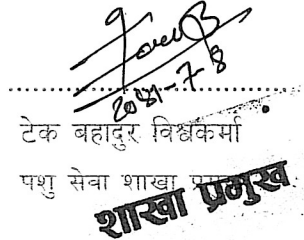 2081-7-8
टेक बहादुर विश्वकर्मा
पशु सेवा शाखा प्रमुख
शाखा प्रमुख